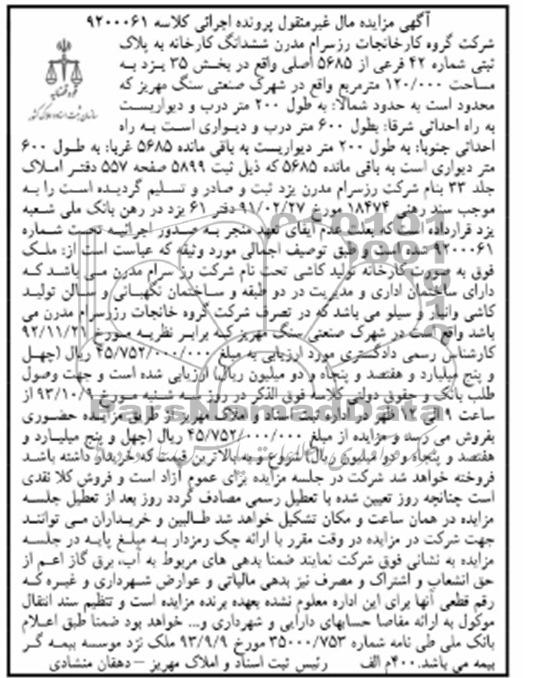 آگهی مزایده مال غیرمنقول پرونده اجرائی کلاسه ۹۲۰۰۰۶۱
شرکت گروه کارخانجات رزسرام مدرن ششدانگ کارخانه به پلاک
ثبتی شماره ۴۲ فرعی از ۵۶۸۵ اصلی واقع در بخش ۳۵ یزد به
مساحت ۱۲۰/۰۰۰ مترمربع واقع در شهرک صنعتی سنگ مهریز که
محدود است به حدود شمالا: به طول ۲۰۰ متر درب و دیواریست
به راه احداثی شرقا: بطول ۶۰۰ متر درب و دیواری است به راه
احداثی جنوبا: به طول ۲۰۰ متر دیواریست به باقی مانده ۵۶۸۵ غربا: به طول ۶۰۰
متر دیواری است به باقی مانده ۵۶۸۵ که ذیل ثبت ۵۸۹۹ صفحه ۵۵۷ دفتر املاک
جلد ۳۳ بنام شرکت رزسرام مدرن یزد ثبت و صادر و تسلیم گردیده است را به
موجب سند رهنی ۱۸۴۷۴ مورخ ۹۱/۰۲/۲۷ دفتر ۶۱ یزد در رهن بانک ملی شعبه
یزد قرارداده است که بعلت عدم ایفای تعهد منجر به صدور اجرائیه تحت شماره
۹۲۰۰۰۶۱ شده است و طبق توصیف اجمالی مورد وثیقه که عبارت است از: ملک
فوق به صورت کارخانه تولید کاشی تحت نام شرکت رز سرام مدرن می باشد که
دارای ساختمان اداری و مدیریت در دو طبقه و ساختمان نگهبانی و سالن تولید
کاشی وانبار و سیلو می باشد که در تصرف شرکت گروه خانجات رزرسرام مدرن می
باشد واقع است در شهرک صنعتی سنگ مهریز که برابر نظریه مورخ ۹۲/۱۱/۲۱
کارشناس رسمی دادگستری مورد ارزیابی به مبلغ ۴۵/۷۵۲/۰۰۰/۰۰۰ ریال (چهل
و پنج میلیارد و هفتصد و پنجاه و دو میلیون ریال) ارزیابی شده است و جهت وصول
طلب بانک و حقوق دولتی کلاسه فوق الذکر در روز سه شنبه مورخ ۹۳/۱۰/۹ از
ساعت ۹ الی ۱۲ ظهر در اداره ثبت اسناد و املاک مهریز از طریق مزایده حضوری
بفروش می رسد و مزایده از مبلغ ۴۵/۷۵۲/۰۰۰/۰۰۰ ریال (چهل و پنج میلیارد و
هفتصد و پنجاه و دو میلیون ریال) شروع و به بالاترین قیمت که خریدار داشته باشد
فروخته خواهد شد شرکت در جلسه مزایده برای عموم آزاد است و فروش کلا نقدی
است چنانچه روز تعیین شده با تعطیل رسمی مصادف گردد روز بعد از تعطیل جلسه
مزایده در همان ساعت و مکان تشکیل خواهد شد طالبین و خریداران می توانند
جهت شرکت در مزایده در وقت مقرر با ارائه چک رمزدار به مبلغ پایه در جلسه
مزایده به نشانی فوق شرکت نمایند ضمنا بدهی های مربوط به آب، برق گاز اعم از
حق انشعاب و اشتراک و مصرف نیز بدهی مالیاتی و عوارض شهرداری و غیره که
رقم قطعی آنها برای این اداره معلوم نشده بعهده برنده مزایده است و تنظیم سند انتقال
موکول به ارائه مفاصا حسابهای دارایی و شهرداری و... خواهد بود ضمنا طبق اعلام
بانک ملی طی نامه شماره ۳۵۰۰۰/۷۵۳ مورخ ۹۳/۹/۹ ملک نزد موسسه بیمه گر
بیمه می باشد. ۴۰۰م الف رئیس ثبت اسناد و املاک مهریز – دهقان منشادی
قوه قضائیه
سازمان ثبت اسناد و املاک کشور
ParsNamadData